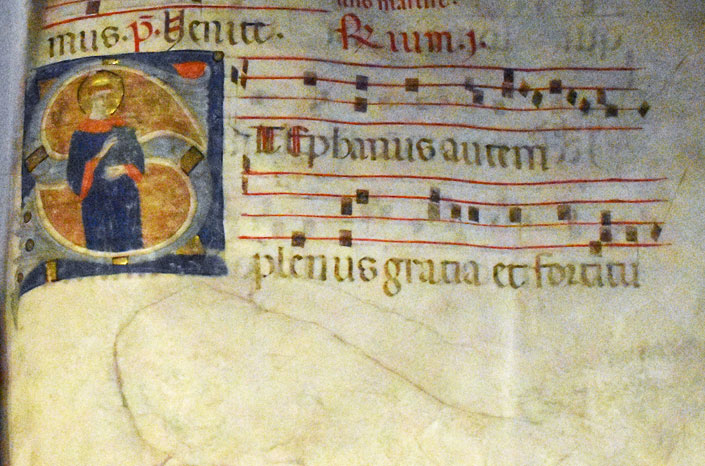 mus. p̄. Venite.
STEphanus autem
plenus gratia et fortitu